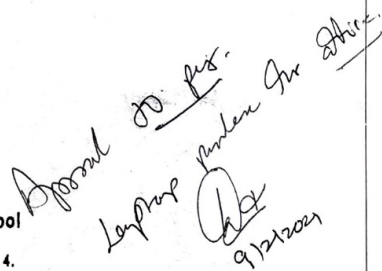 Approval 20 pcs.
Laptop purchase for office.
9/2/2021
ool
4.